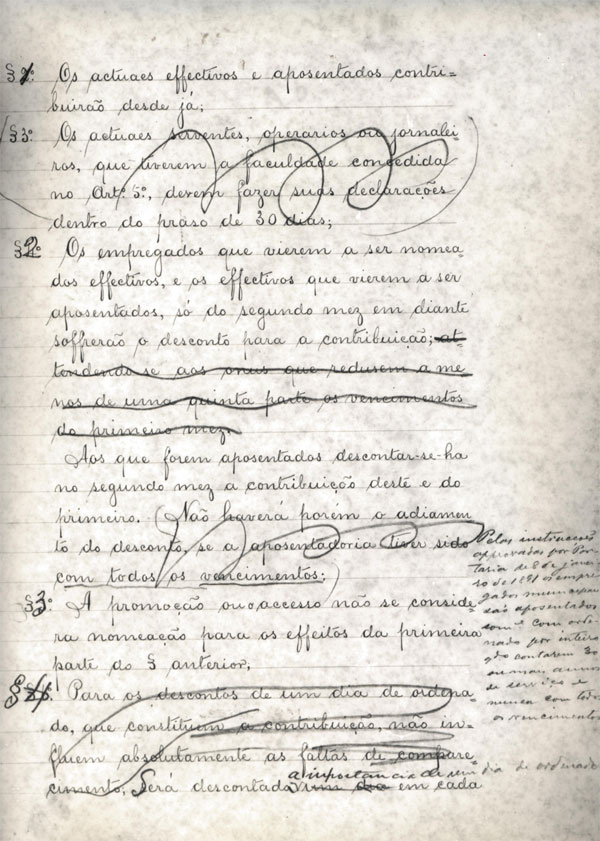 § 1º Os actuaes effectivos e aposentados contri-
buirão desde já;
§ 3º Os actuaes serventes, operarios ou jornalei-
ros, que tiverem a faculdade concedida
no Artº 5º, devem fazer suas declarações
dentro do praso de 30 dias;
§ 2º Os empregados que vierem a ser nomea-
dos effectivos, e os effectivos que vierem a ser
aposentados, só do segundo mez em diante
soffrerão o desconto para a contribuição; at-
tendendo se aos onus que redusem a me
nos de uma quinta parte os vencimentos
do primeiro mez.
Aos que forem aposentados descontar-se-ha
no segundo mez a contribuição deste e do
primeiro. (Não haverá porem o adiamen
to do desconto, se a aposentadoria tiver sido
com todos os vencimentos;)
Pelas instrucções
approvadas por Por
taria de 8 de janei
ro de 1891 os empre
gados
são aposentados
com orde
nado por inteiro
contarem 30
ou mais annos
de serviço e
nunca com todos
os vencimentos
§ 3º A promoção ou o accesso não se conside
ra nomeação para os effeitos da primeira
parte do § anterior;
§ 4º Para os descontos de um dia de ordena
do, que constituem a contribuição, não in-
fluem absolutamente as faltas de compare
cimento; Será descontada a importancia de um dia de ordenado
um dia em cada